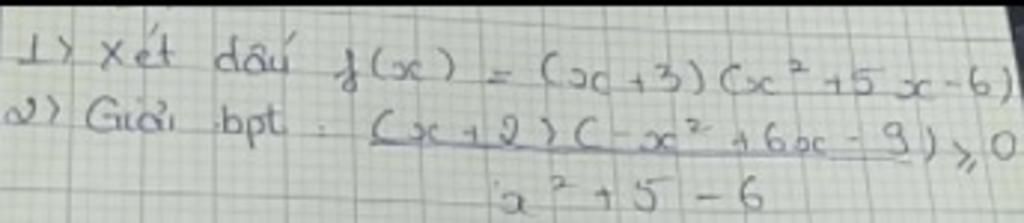 1) Xét dấu f(x) = (x+3)(x² +5x-6)
2) Giải bpt : (x+2)(-x² +6x-9) ≥ 0
x² +5 -6